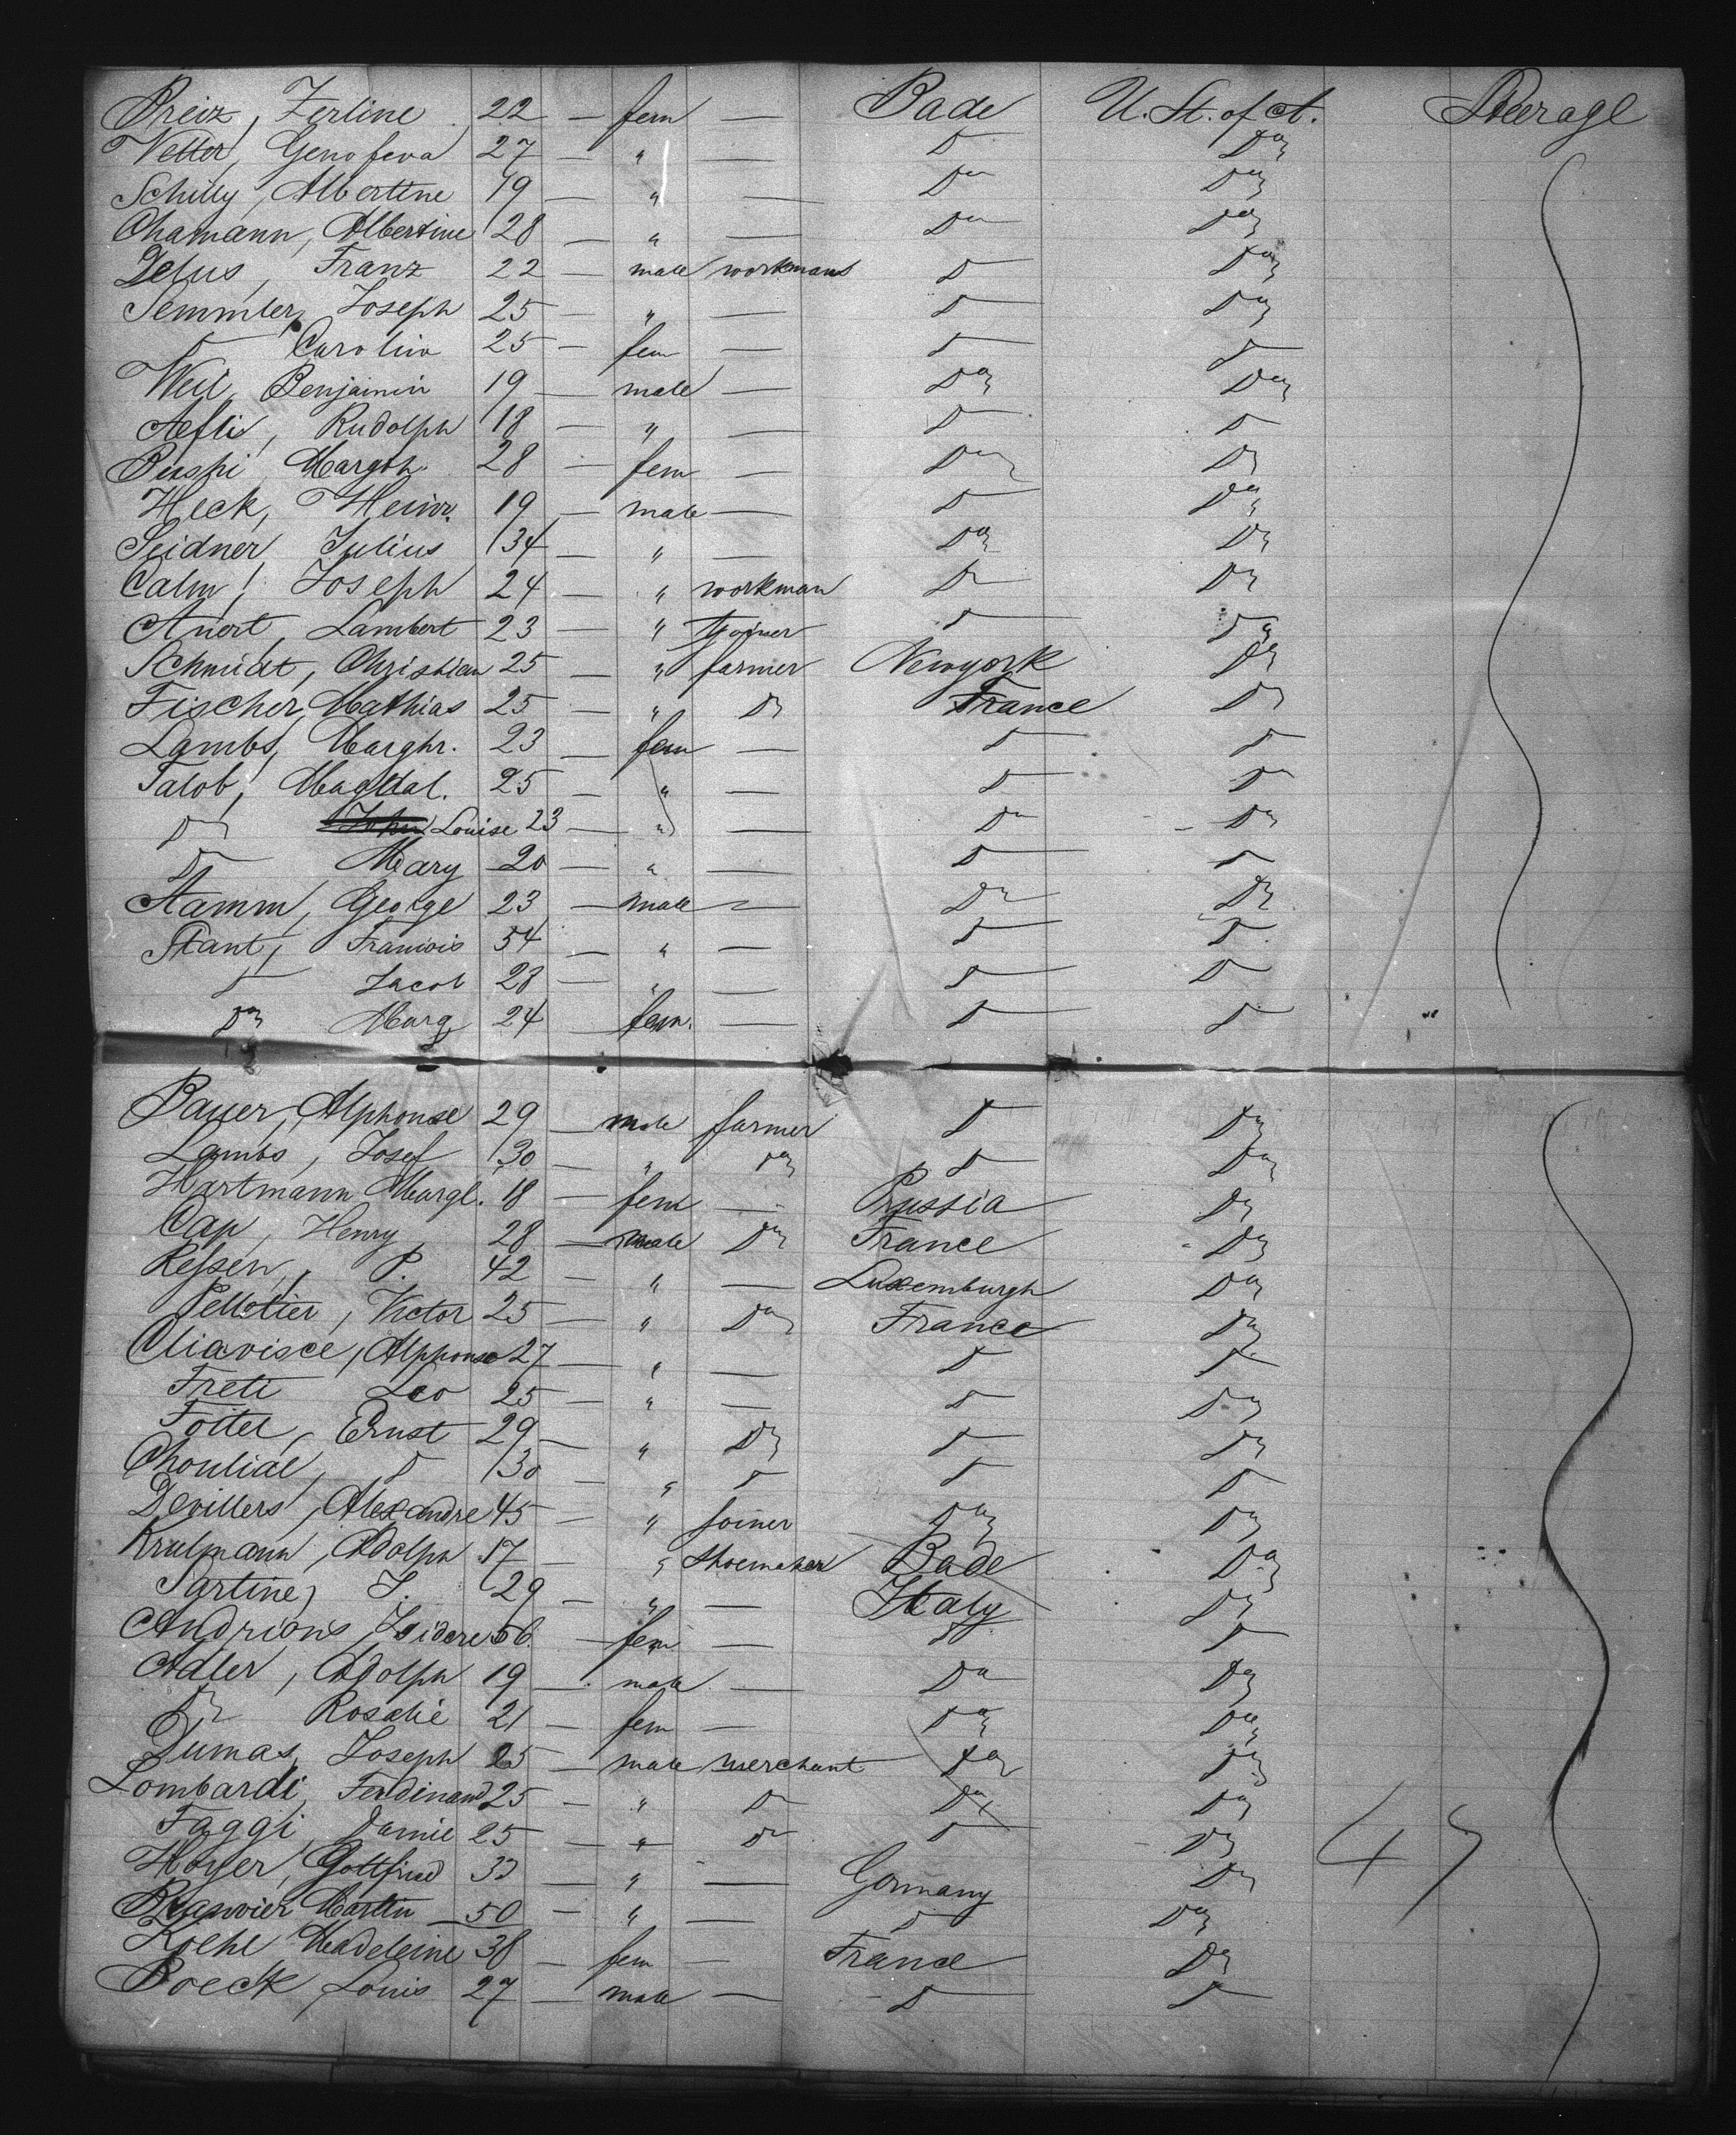 Preiz, Zerline 22 — fem — Bade U. St. of A. Steerage
Vetter, Genofeva 27 — " — Do Do
Schilly, Albertine 19 — " — Do Do
Chamann, Albertine 28 — " — Do Do
Delus, Franz 22 — male workmans Do Do
Semmler, Joseph 25 — " — Do Do
Do Carolina 25 — fem — Do Do
Weil, Benjamin 19 — male — Do Do
Aefli, Rudolph 18 — " — Do Do
Margth. 28 — fem — Do Do
Heck, Heinr. 19 — male — Do Do
Seidner, Julius 34 — " — Do Do
Calm, Joseph 24 — " workman Do Do
Anert, Lambert 23 — " Joiner Do Do
Schmidt, Christian 25 — " farmer Newyork Do
Fischer, Mathias 25 — " Do France Do
Lambs, Marghr. 23 — fem — Do Do
Jalob, Magdal. 25 — " — Do Do
Do John Louise 23 — " — Do Do
Do Mary 20 — " — Do Do
Stamm, George 23 — male — Do Do
Stant, Francois 54 — " — Do Do
Do Jacob 28 — " — Do Do
Do Marg 24 fem. — Do Do
Bauer, Alphonse 29 — male farmer Do Do
Lambs, Josef 30 — " Do Do Do
Hartmann Margt. 18 — fem — Prussia Do
Cap, Henry 28 — male Do France Do
Kessen, P. 42 — " — Luxemburgh Do
Pelletier, Victor 25 — " Do France Do
Cliavisce, Alphonse 27 — " — Do Do
Freti Leo 25 — " — Do Do
Foitel, Ernst 29 — " Do Do Do
Choulial, Do 30 — " Do Do Do
Devillers, Alexandre 45 — " Joiner Do Do
Krulmann, Adolph 17 — " Shoemaker Bade Do
Sartine, J. 29 — " — Italy Do
Andrions, Isidore 56 — fem — Do Do
Adler, Adolph 19 — male — Do Do
Do Rosalie 21 — fem — Do Do
Dumas, Joseph 25 — male merchant Do Do
Lombardi, Ferdinand 25 — " Do Do Do
Faggi, Damie 25 — " Do Do Do
Hoyer, Gottfried 33 — " — Germany Do
Martin 50 — " — Do Do
Koehl Madeleine 38 — fem — France Do
Boeck Louis 27 — male — Do Do
47